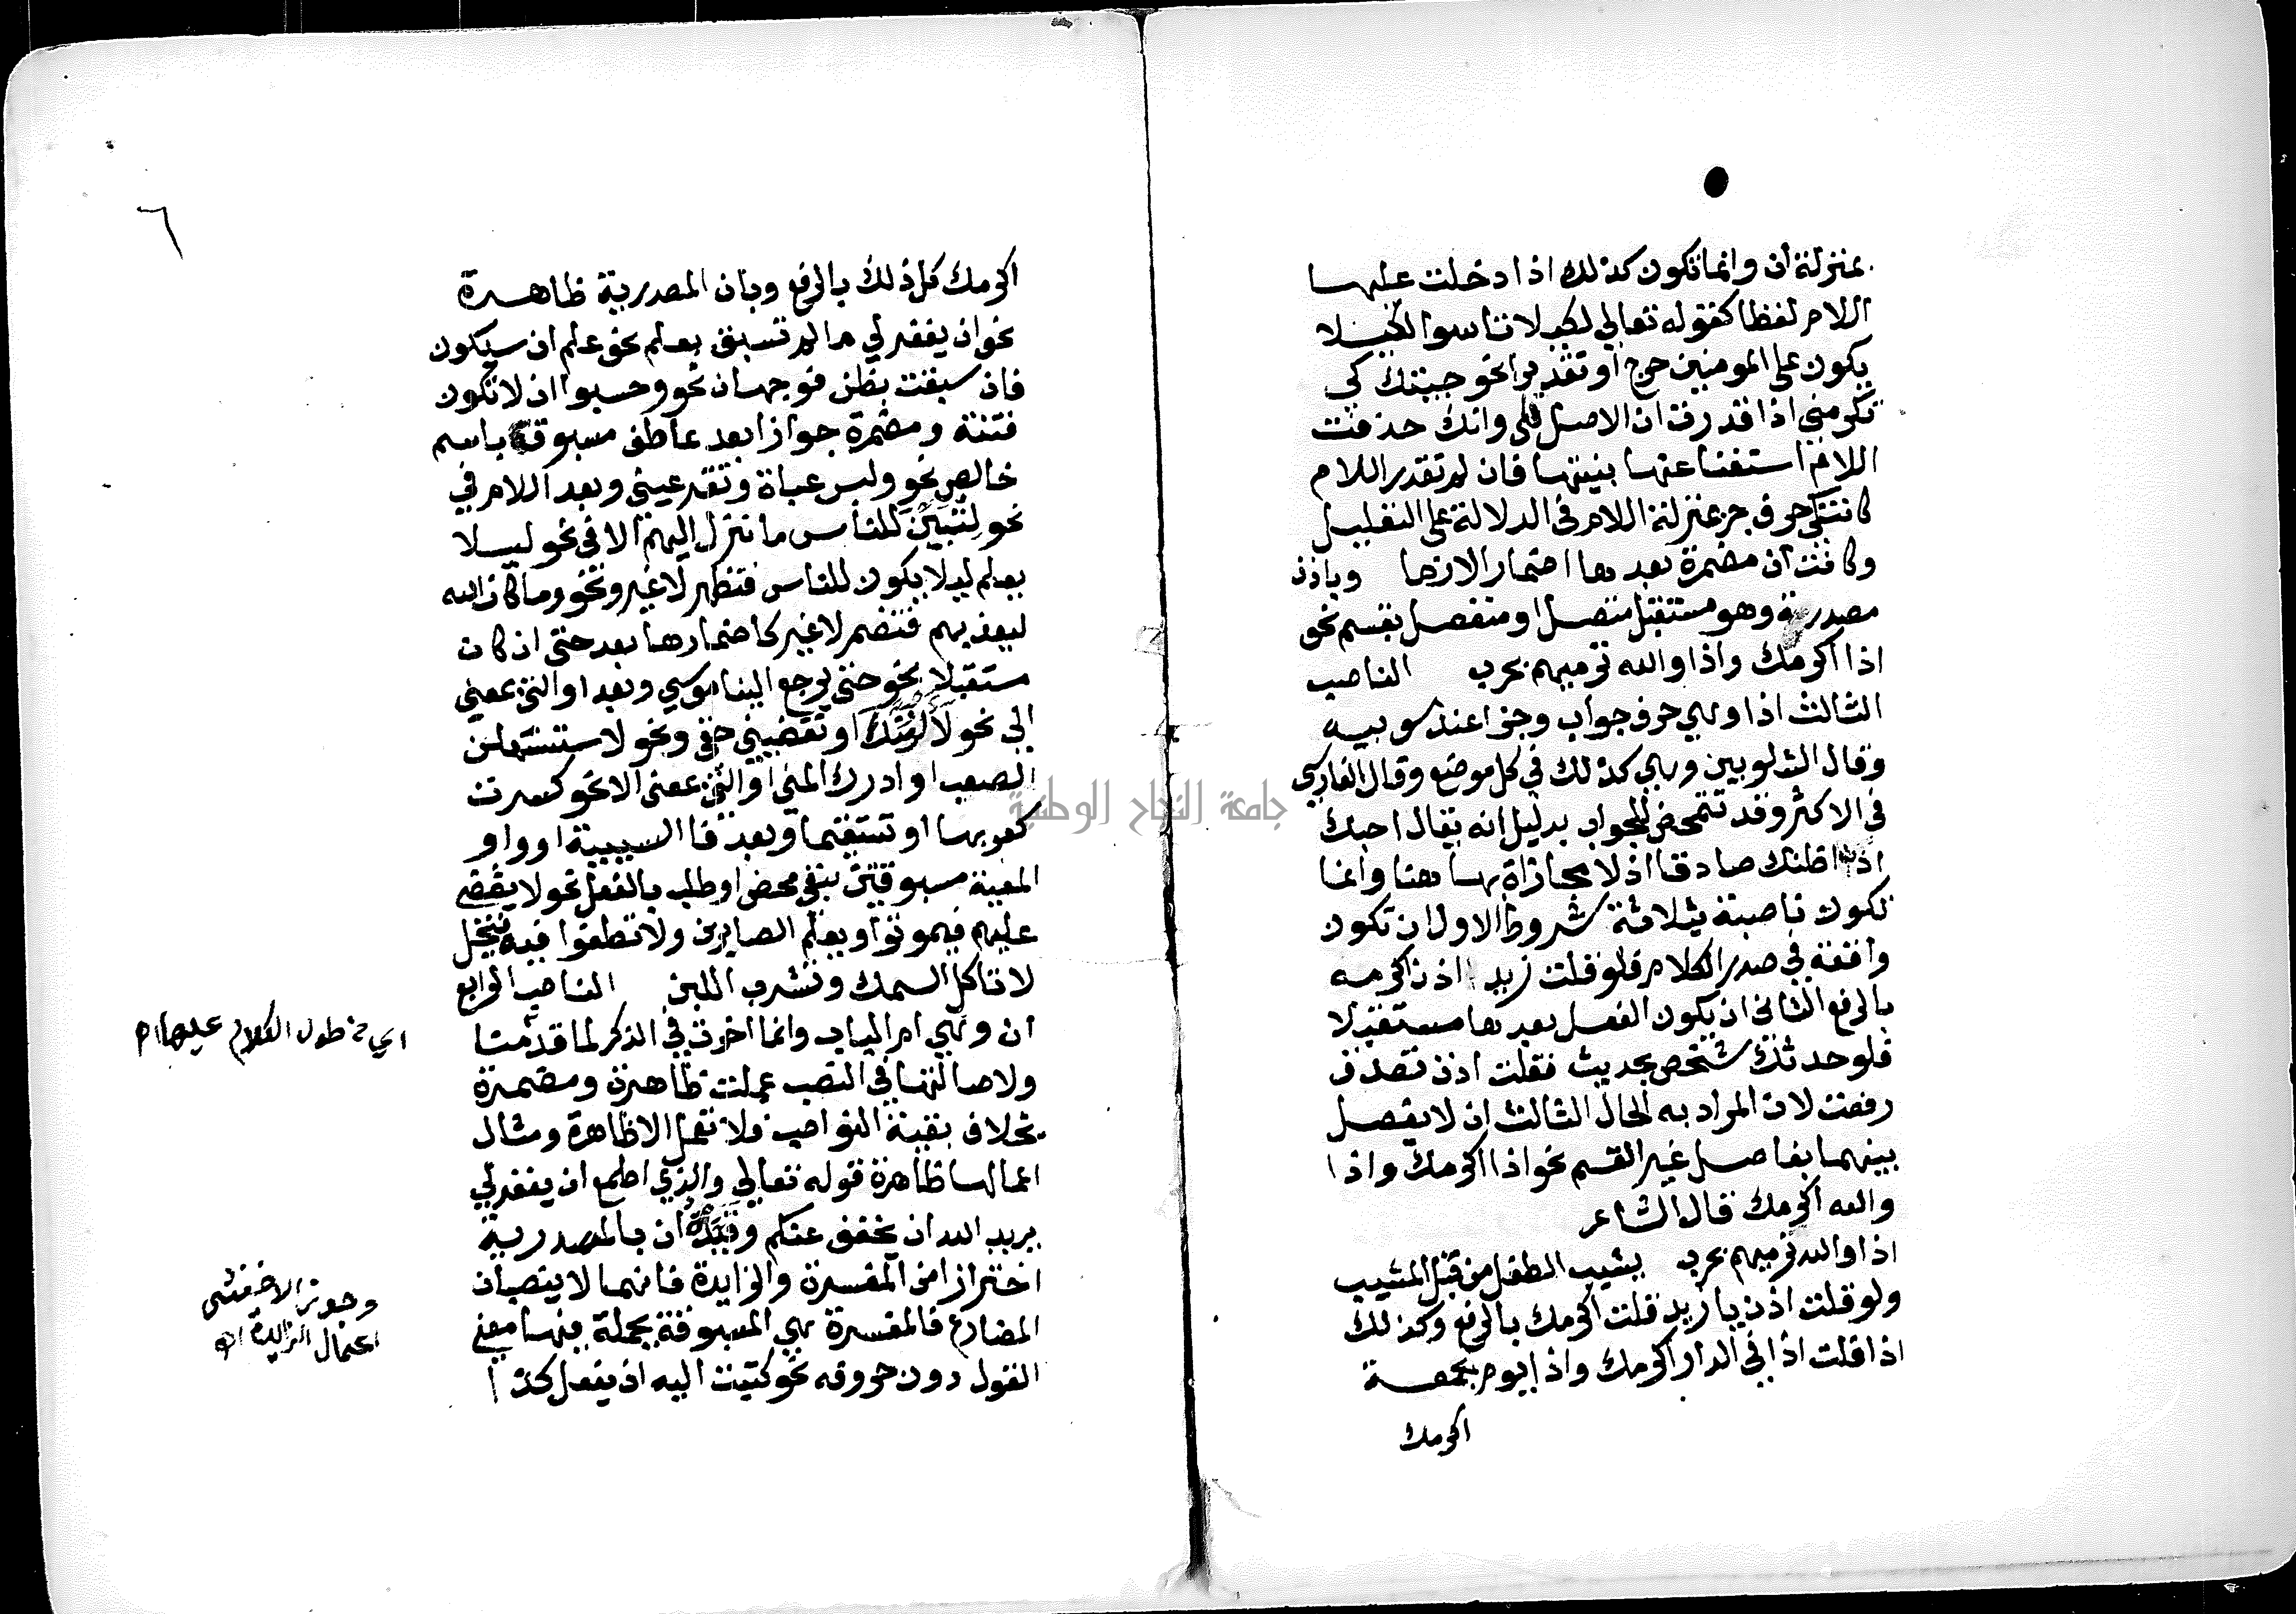 بمنزلة أن وانما تكون كذلك اذا دخلت عليها
اللام لفظا كقوله تعالي لكيلا تاسوا لكيلا
يكون على المومنين حرج او تقديرا نحو جيتك كي
تكرمني اذا قدرت ان الاصل لكي وانك حذفت
اللام استغنا عنها بنيتها فان لم تقدر اللام
كانت كي حرف جر بمنزلة اللام في الدلالة على التعليل
وكانت أن مضمرة بعدها اضمارا لازما وباذن
مصدرة وهو مستقبل متصل او منفصل بقسم نحو
اذا اكرمك واذا والله نرميهم بحرب الناصب
الثالث اذا وهي حرف جواب وجزا عند سوبيه
وقال الشلوبين وهي كذلك في كل موضع وقال الفارسي
في الاكثر وقد تتمحض للجواب بدليل انه يقال احبك
اذا اظنك صادقا اذ لا مجازاة بها هنا وانما
تكون ناصبة بثلاثة شروط الاول ان تكون
واقعة في صدر الكلام فلو قلت زيد اذن اكرمه
بالرفع الثاني ان يكون الفعل بعدها مستقبلا
فلو حدثك شخص بحديث فقلت اذن تصدق
رفعت لان المراد به الحال الثالث ان لا يفصل
بينهما بفاصل غير القسم نحو اذا اكرمك واذا
والله اكرمك قال الشاعر
اذا والله نرميهم بحرب يشيب الطفل من قبل المشيب
ولو قلت اذن يا زيد قلت اكرمك بالرفع وكذلك
اذا قلت اذا في الدار اكرمك واذا يوم الجمعة
اكرمك
٦
اكرمك كل ذلك بالرفع وبان المصدرية ظاهرة
نحو ان يغفر لي ما لم تسبق بعلم نحو علم ان سيكون
فان سبقت بظن فوجهان نحو وحسبوا ان لا تكون
فتنة ومضمرة جوازا بعد عاطف مسبوق باسم
خالص نحو ولبس عباة وتقر عيني وبعد اللام في
نحو لتبين للناس ما نزل اليهم الا في نحو ليلا
يعلم ليلا يكون للناس فتظهر لا غير ونحو وما كان الله
ليعذبهم فتضمر لا غير كاضمارها بعد حتى ان كان
مستقبلا نحو حتى يرجع الينا موسي وبعد او التي بمعني
إلي نحو لألزمنك او تقضيني حقي ونحو لاستسهلن
الصعب او ادرك المني او التي بمعنى الا نحو كسرت
كعوبها او تستقيما وبعد فا السببية او واو
المعية مسبوقتين بنفي محض او طلب بالفعل نحو لا يقضي
عليهم فيموتوا ويعلم الصابرين ولا تطغوا فيه فيحل
لا تاكل السمك وتشرب اللبن الناصب الرابع
ان وهي ام الباب وانما اخرت في الذكر لما قدمنا
ولاصالتها في النصب عملت ظاهرة ومضمرة
بخلاف بقية النواصب فلا تعمل الا ظاهرة ومثال
اعمالها ظاهرة قوله تعالي والذي اطمع ان يغفر لي
يريد الله ان يخفف عنكم وقيدت ان بالمصدرية
احترازا من المفسرة والزايدة فانهما لا ينصبان
المضارع فالمفسرة هي المسبوقة بجملة فيها معني
القول دون حروفه نحو كتبت اليه ان يفعل كذا
اي من طول الكلام عليها اه
وجوز الاخفش
اعمال الزايدة اه
جامعة النجاح الوطنية